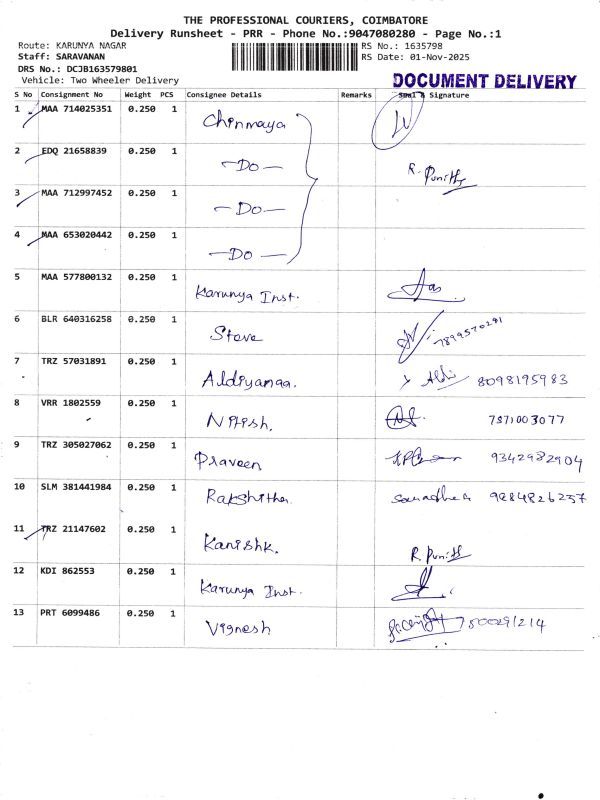 THE PROFESSIONAL COURIERS, COIMBATORE
Delivery Runsheet - PRR - Phone No.:9047080280 - Page No.:1
Route: KARUNYA NAGAR RS No.: 1635798
Staff: SARAVANAN RS Date: 01-Nov-2025
DRS No.: DCJB163579801
Vehicle: Two Wheeler Delivery DOCUMENT DELIVERY
S No Consignment No Weight PCS Consignee Details Remarks Seal & Signature
1 MAA 714025351 0.250 1 Chinmaya
2 EDQ 21658839 0.250 1 -Do- R. Punith
3 MAA 712997452 0.250 1 -Do-
4 MAA 653020442 0.250 1 -Do-
5 MAA 577800132 0.250 1 Karunya Inst.
6 BLR 640316258 0.250 1 Steve
7 TRZ 57031891 0.250 1 Aldiyanaa. 8098195983
8 VRR 1802559 0.250 1 Nitish. 7871003077
9 TRZ 305027062 0.250 1 Praveen 9342982904
10 SLM 381441984 0.250 1 Rakshitha 9884826257
11 TRZ 21147602 0.250 1 Kanishk. R. Punith
12 KDI 862553 0.250 1 Karunya Inst.
13 PRT 6099486 0.250 1 Vignesh